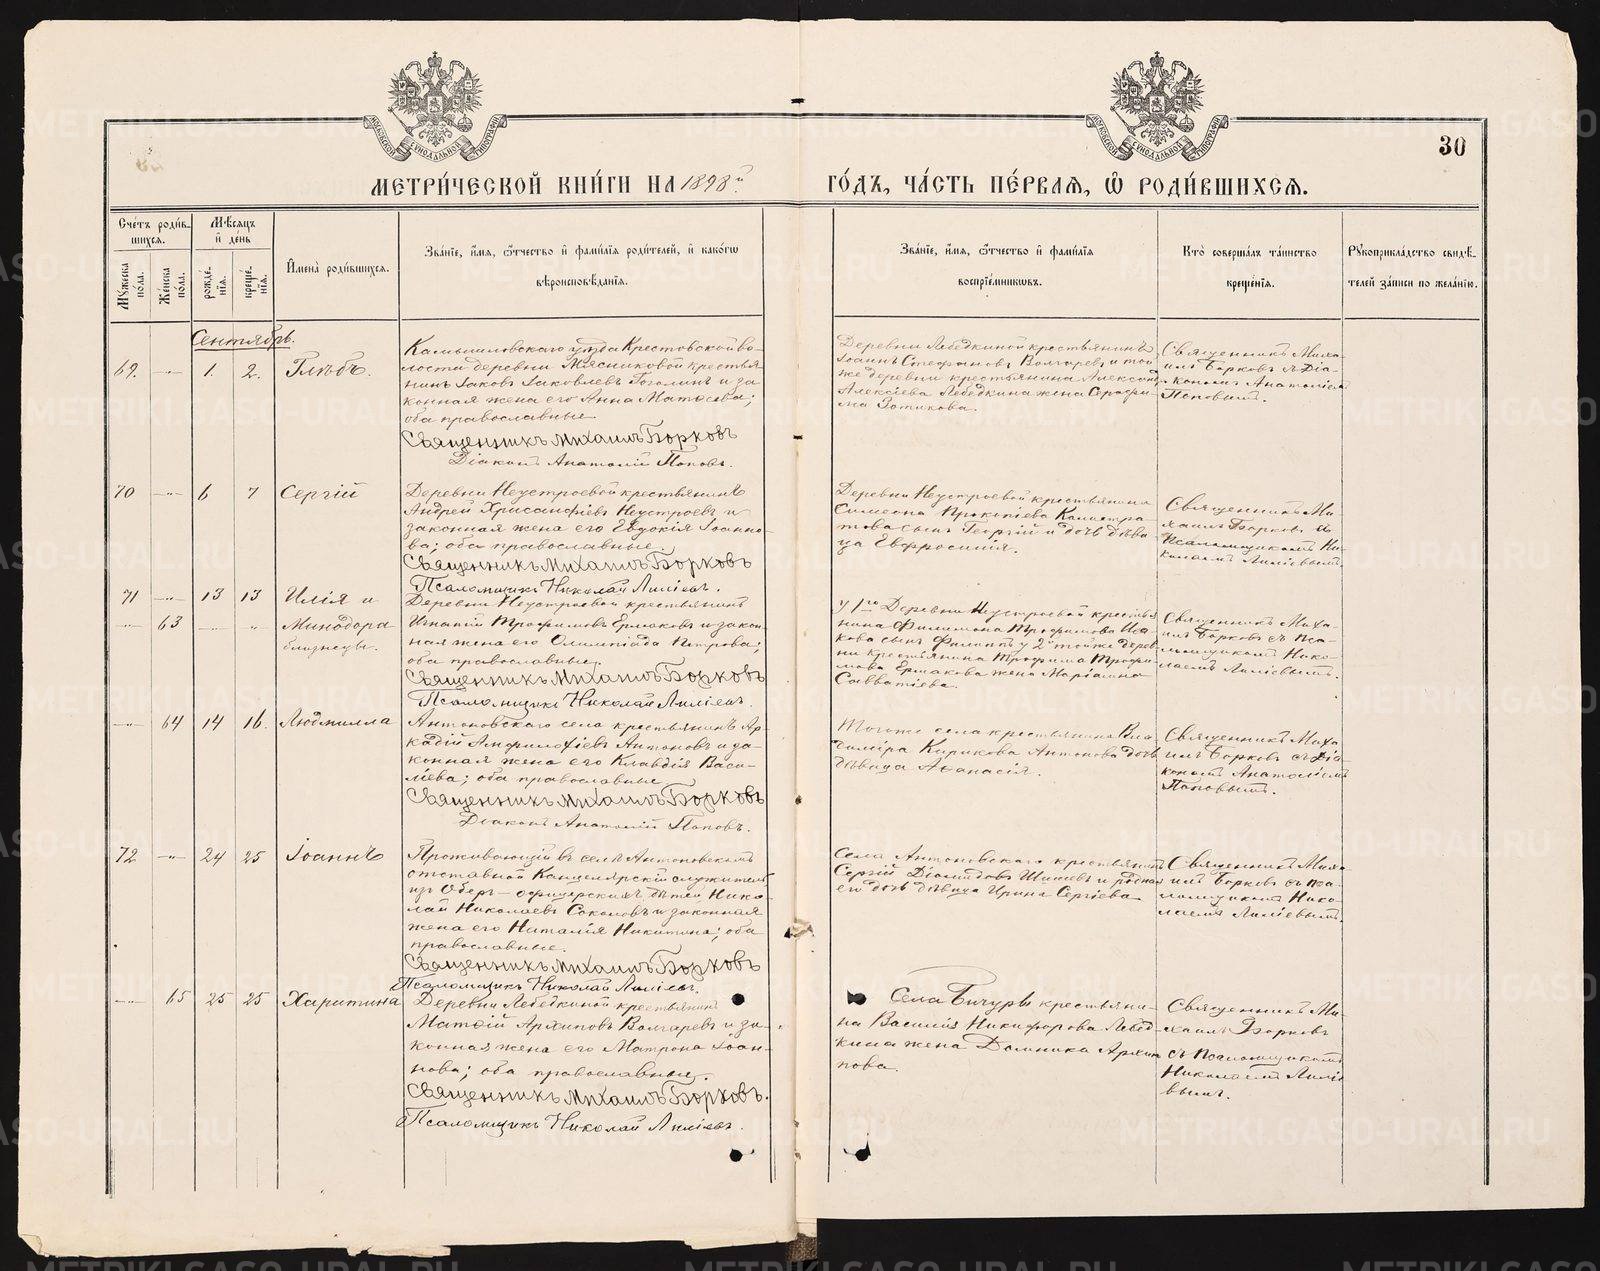 МЕТРИ́ЧЕСКОЙ КНИ́ГИ НА 1898й
ГО́ДЪ, ЧА́СТЬ ПЕ́РВАѦ, Ѽ РОДИ́ВШИХСѦ.
30
Сче́тъ роди́в-
шихсѧ.
Мѣ́сѧцъ
и҆ де́нь
И҆мена̀ роди́вшихсѧ.
Зва́нїе, и҆́мѧ, ѻ҆́тчество и҆ фами́лїѧ роди́телей, и҆ како́гѡ
вѣроисповѣ́данїѧ.
Мꙋ́жеска по́ла.
Же́нска по́ла.
рожде́нїѧ.
креще́нїѧ.
Зва́нїе, и҆́мѧ, ѻ҆́тчество и҆ фами́лїѧ
воспрїе́мникѡвъ.
Кто̀ соверша́лъ та́инство
креще́нїѧ.
Рꙋкоприкла́дство свидѣ́-
телей за́писи по жела́нїю.
Сентябрь.
69. -"- 1. 2. Глѣбъ.
Камышловскаго уѣзда Крестовской во-
лости деревни Мясниковой крестья
нинъ Іаковъ Іаковлевъ Гоголинъ и за
конная жена его Анна Матѳеева;
оба православные
Священникъ Михаилъ Борковъ
Діаконъ Анатолій Поповъ.
Деревни Лебедкиной крестьянинъ
Іоаннъ Стефановъ Волгаревъ и той
же деревни крестьянина Александ
Алексіева Лебедкина жена Серафи-
ма Зотикова.
Священникъ Миха-
илъ Борковъ съ Діа-
кономъ Анатоліемъ
Поповымъ.
70 -"- 6 7 Сергій
Деревни Неустроевой крестьянинъ
Андрей Хрисанфіевъ Неустроевъ и
законная жена его Евдокія Іоанно-
ва; оба православные.
Священникъ Михаилъ Борковъ
Псаломщикъ Николай Лиліевъ.
Деревни Неустроевой крестьянина
Симеона Прокопіева Калистра-
това сынъ Георгій и дочь дѣви
ца Евфросинія.
Священникъ Ми-
хаилъ Борковъ съ
Псаломщикомъ Ни-
колаемъ Лиліевымъ.
71 -"- 13 13 Илія и
-"- 63 - " Минодора
близнецы.
Деревни Неустроевой крестьянинъ
Игнатій Трофимовъ Ермаковъ и закон-
ная жена его Олимпіада Петрова;
оба православные.
Священникъ Михаилъ Борковъ
Псаломщикъ Николай Лиліевъ.
У 1го Деревни Неустроевой крестья
нина Филимона Трофимова Иса-
кова сынъ Филиппъ у 2й тойже дерев
ни крестьянина Трофима Трофи-
мова Ермакова жена Маріамна
Савватіева.
Священникъ Миха-
илъ Борковъ съ Пса-
ломщикомъ Нико-
лаемъ Лиліевымъ.
-"- 64 14 16. Людмилла
Антоновскаго села крестьянинъ Ар-
кадій Амфилофіевъ Антоновъ и за-
конная жена его Клавдія Васи-
ліева; оба православные
Священникъ Михаилъ Борковъ
Діаконъ Анатолій Поповъ.
Тогоже села крестьянина Вла-
диміра Карикова Антонова дочь
дѣвица Аѳанасія.
Священникъ Миха-
илъ Борковъ съ Діа-
кономъ Анатоліемъ
Поповымъ.
72 -"- 24 25 Іоаннъ
Проживающій въ селѣ Антоновскомъ
отставной Канцелярскій служитель
изъ Оберъ-офицерскихъ дѣтей Нико-
лай Николаевъ Соколовъ и законная
жена его Наталія Никитина; оба
православные.
Священникъ Михаилъ Борковъ
Псаломщикъ Николай Лиліевъ.
Села Антоновскаго крестьянинъ
Сергій Діомидовъ Шишевъ и родная
его дочь дѣвица Ирина Сергіева
Священникъ Миха-
илъ Борковъ съ Пса-
ломщикомъ Нико-
лаемъ Лиліевымъ.
-"- 65 25 25 Харитина
Деревни Лебедкиной крестьянинъ
Матѳій Архиповъ Волгаревъ и за-
конная жена его Матрона Іоан-
нова; оба православные.
Священникъ Михаилъ Борковъ.
Псаломщикъ Николай Лиліевъ.
Села Бичуръ крестьяни-
на Василія Никифорова Лебед-
кина жена Домника Архип
пова.
Священникъ Ми-
хаилъ Борковъ
съ Псаломщикомъ
Николаемъ Лиліе
вымъ.